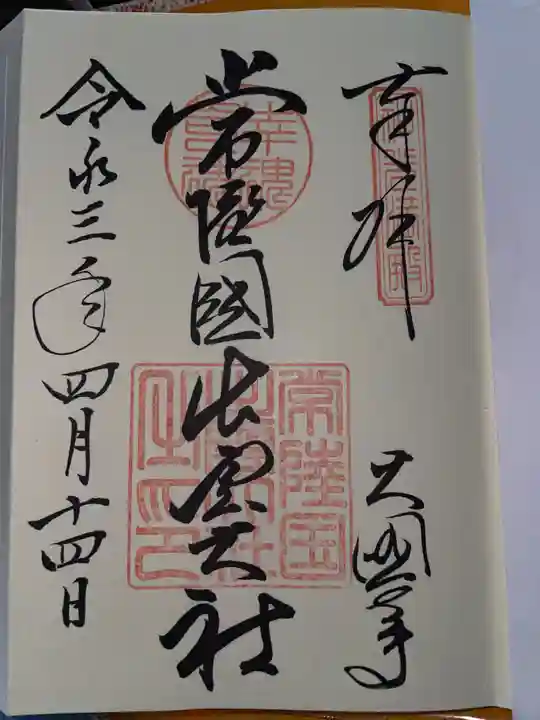 奉拝
大國宰
常陸國出雲大社
常陸国
出雲大社
之印
幸魂
令和三年四月十四日